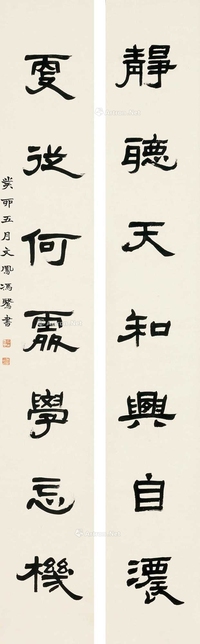 靜聽天和興自濃
更從何處學忘機
癸卯五月文鳳馮鷖書